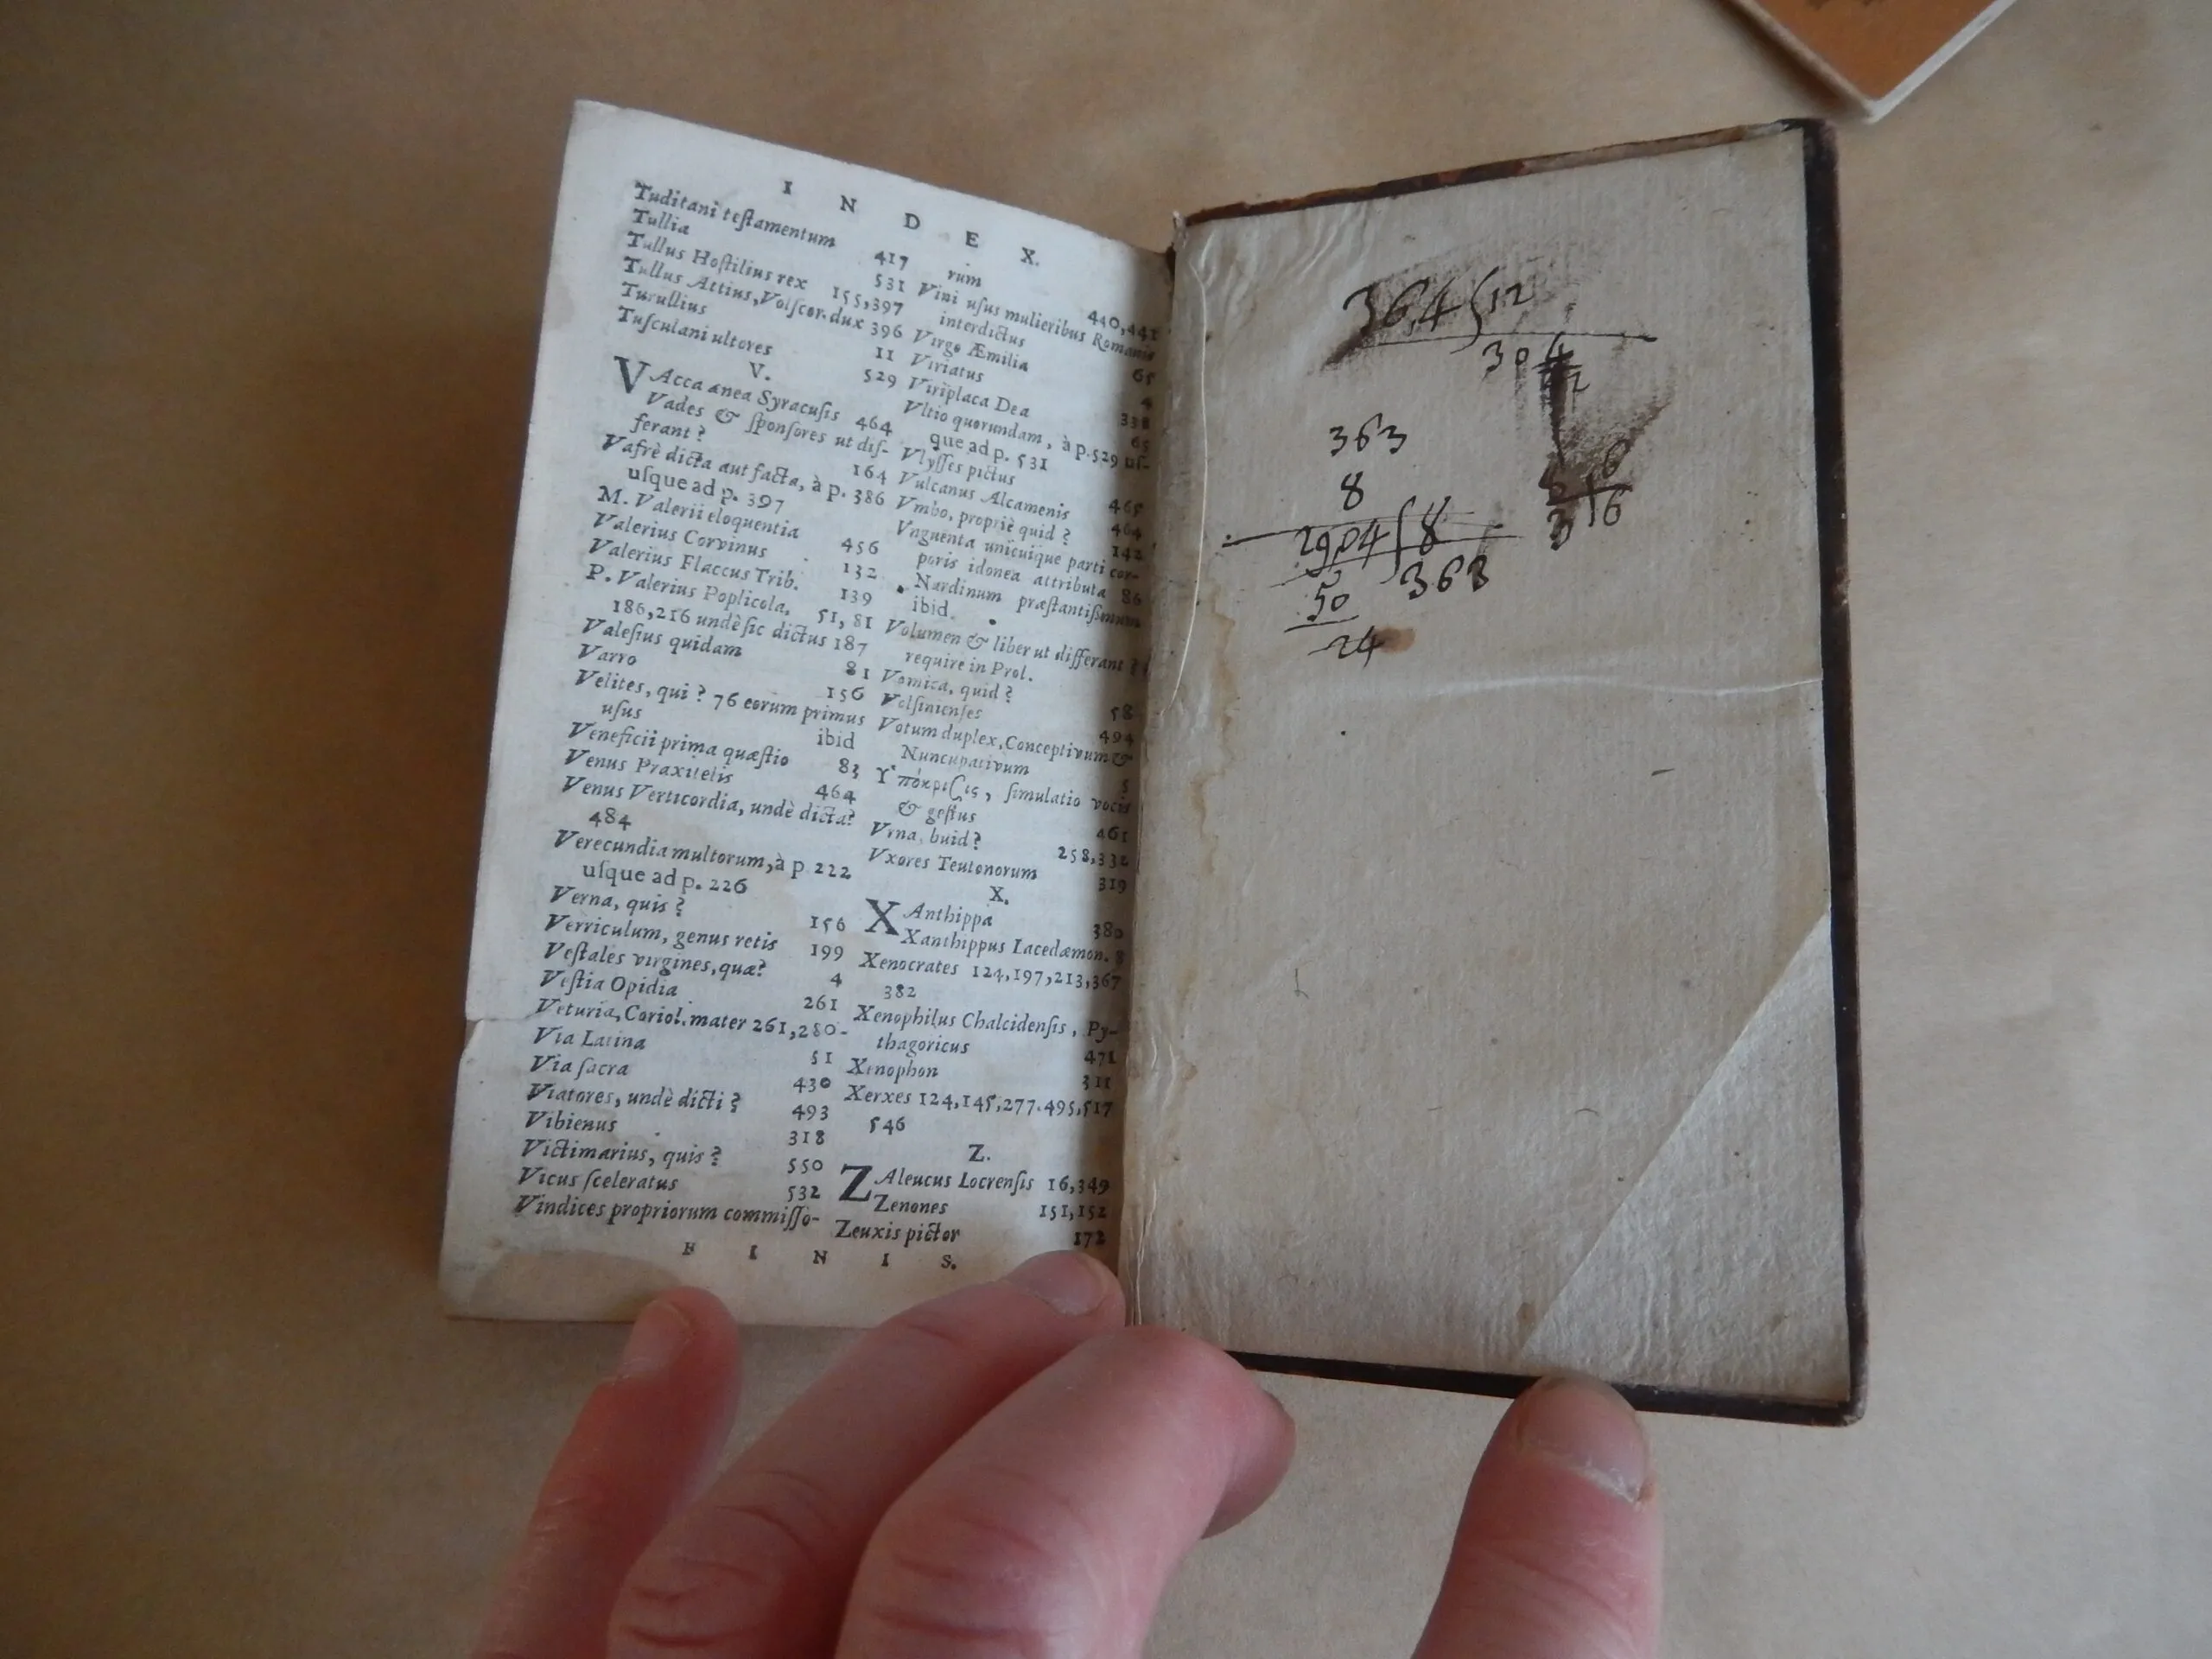 I N D E X.
Tuditani teſtamentum 417
Tullia 531
Tullus Hoſtilius rex 155,397
Tullus Attius, Volſcor. dux 396
Turullius 11
Tuſculani ultores 529
V.
VAcca ænea Syracuſis 464
Vades & ſponſores ut diſ-
ferant? 164
Vafrè dicta aut facta, à p. 386
uſque ad p. 397
M. Valerii eloquentia 456
Valerius Corvinus 132
Valerius Flaccus Trib. 139
P. Valerius Poplicola, 51, 81
186,216 undè ſic dictus 187
Valeſius quidam 81
Varro 156
Velites, qui? 76 eorum primus
uſus ibid
Veneficii prima quæſtio 83
Venus Praxitelis 464
Venus Verticordia, undè dicta?
484
Verecundia multorum, à p 222
uſque ad p. 226
Verna, quis? 156
Verriculum, genus retis 199
Veſtales virgines, quæ? 4
Veſtia Opidia 261
Veturia, Coriol. mater 261,280-
Via Latina 51
Via ſacra 430
Viatores, undè dicti? 493
Vibienus 318
Victimarius, quis? 550
Vicus ſceleratus 532
Vindices propriorum commiſſo-
rum 440,441
Vini uſus mulieribus Romanis
interdictus 65
Virgo Æmilia 4
Viriatus 338
Viriplaca Dea 65
Vltio quorundam, à p. 529 uſ-
que ad p. 531
Vlyſſes pictus 465
Vulcanus Alcamenis 464
Vmbo, propriè quid? 142
Vnguenta unicuique parti cor-
poris idonea attributa 86
Nardinum præſtantiſſimum
ibid.
Volumen & liber ut differant?
require in Prol.
Vomica, quid? 58
Volſinienſes 494
Votum duplex, Conceptivum &
Nuncupativum 5
Ὑπόκρισις, ſimulatio vocis
& geſtus 461
Vrna, buid? 258,332
Vxores Teutonorum 319
X.
XAnthippa 380
Xanthippus Lacedæmon. 8
Xenocrates 124,197,213,367
382
Xenophilus Chalcidenſis, Py-
thagoricus 471
Xenophon 311
Xerxes 124,145,277.495,517
546
Z.
ZAleucus Locrenſis 16,349
Zenones 151,152
Zeuxis pictor 172
F I N I S.
364 12
304
363
8
2904 8
50 363
24